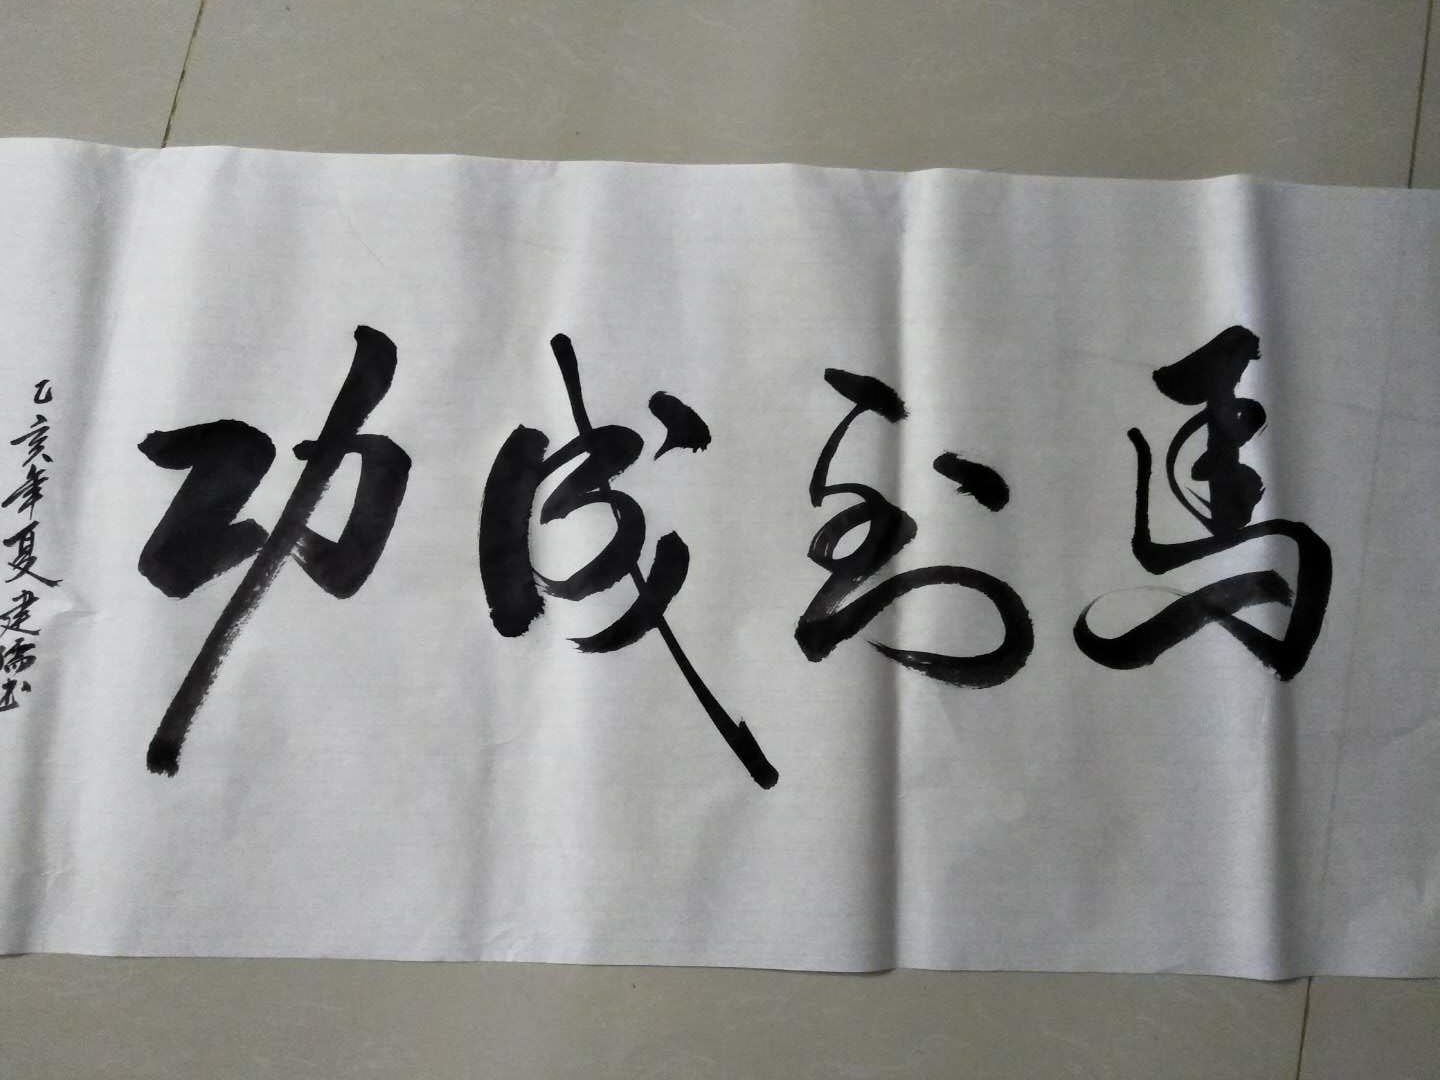 馬到成功
乙亥年夏建儒书